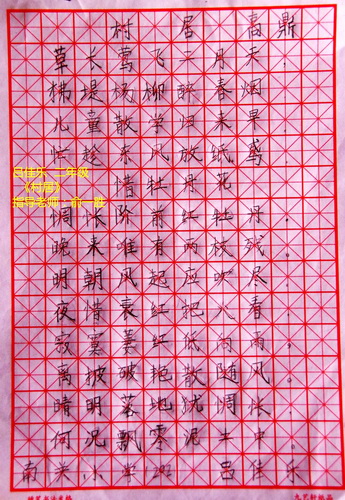 村居 高鼎
草长莺飞二月天，
拂堤杨柳醉春烟。
儿童散学归来早，
忙趁东风放纸鸢。
吕佳乐 二年级
《村居》
指导老师 俞一胜
惜牡丹花
惆怅阶前红牡丹，
晚来唯有两枝残。
明朝风起座吹尽，
夜惜衰红把火春。
寂寞萎红低向雨，
离披破艳散随风。
晴明落地犹惆怅，
何况飘零泥土中。
南关小学 吕佳乐
九艺轩纸品